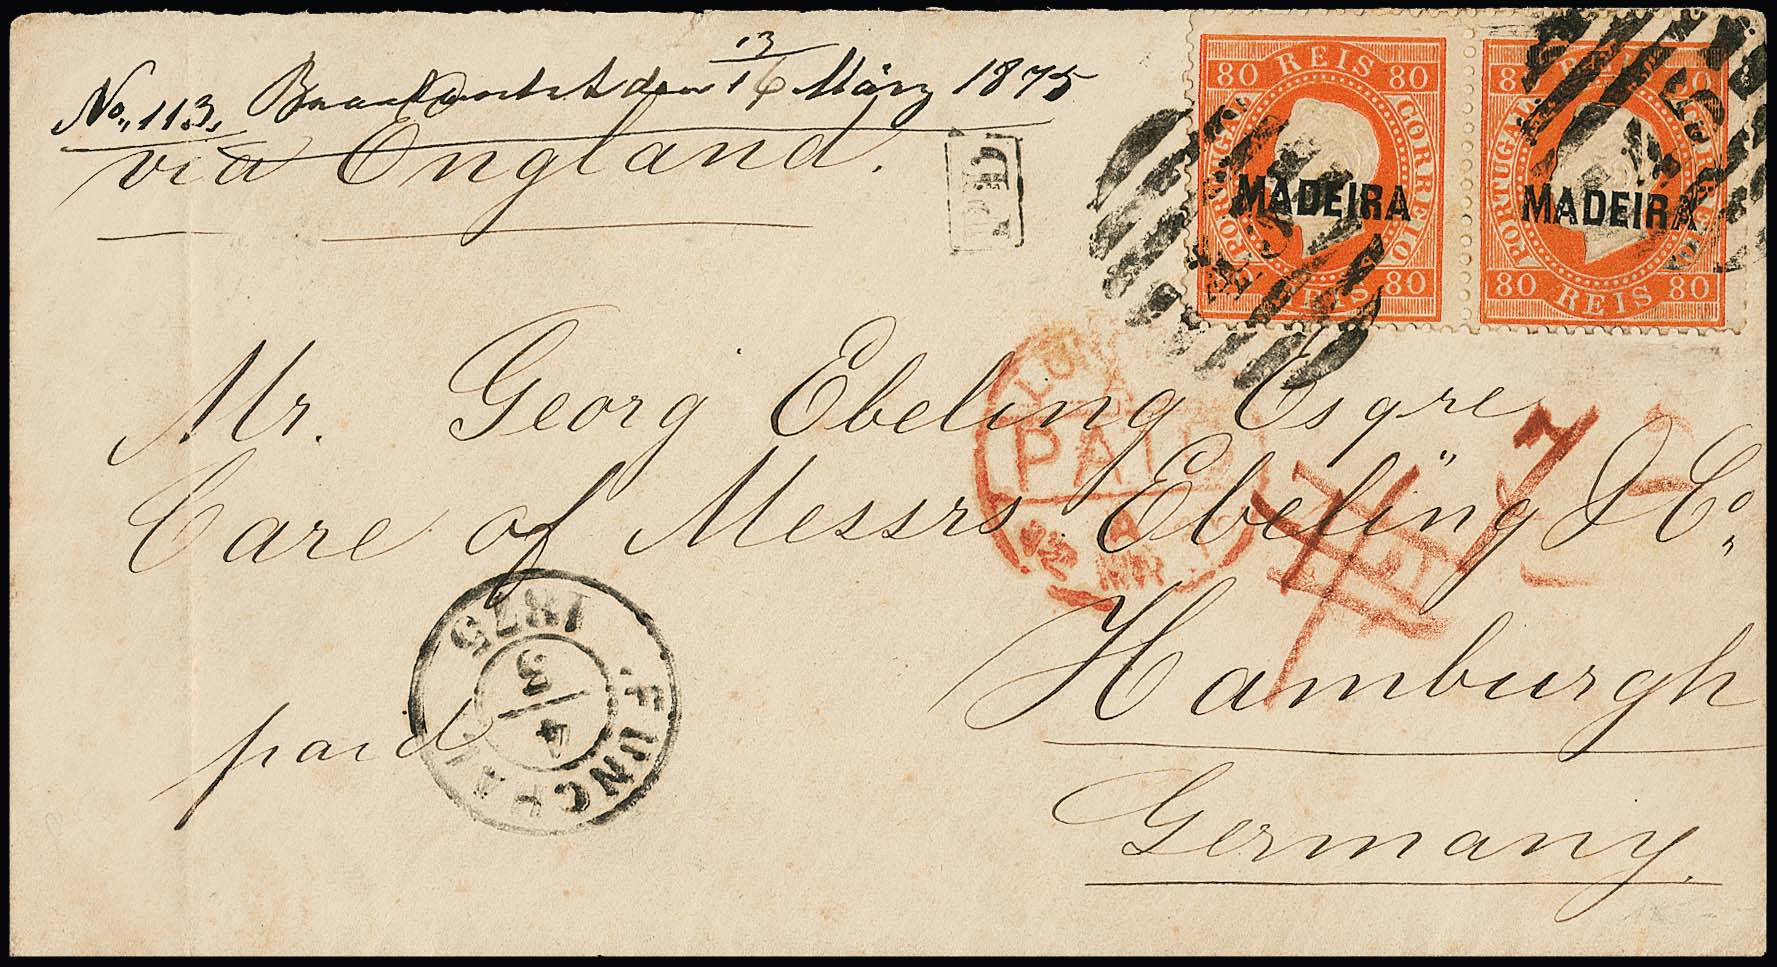 No. 113, Beantwortet den 13/16 März 1875
via England.
P.D.
80 REIS 80
PORTUGAL CORREIO
MADEIRA
80 REIS 80
80 REIS 80
PORTUGAL CORREIO
MADEIRA
80 REIS 80
Mr. Georg Ebeling Esqre
Care of Messrs Ebeling & Co,
Hamburgh
Germany.
paid
PAID
FUNCHAL
4
3
1875